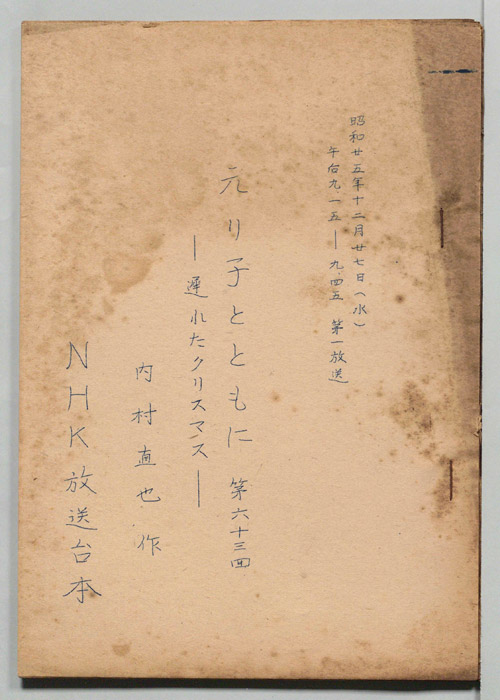 昭和廿五年十二月廿七日(水)
午后九.一五——九.四五 第一放送
元リ子とともに 第六十三回
——遅れたクリスマス——
内村直也作
NHK放送台本